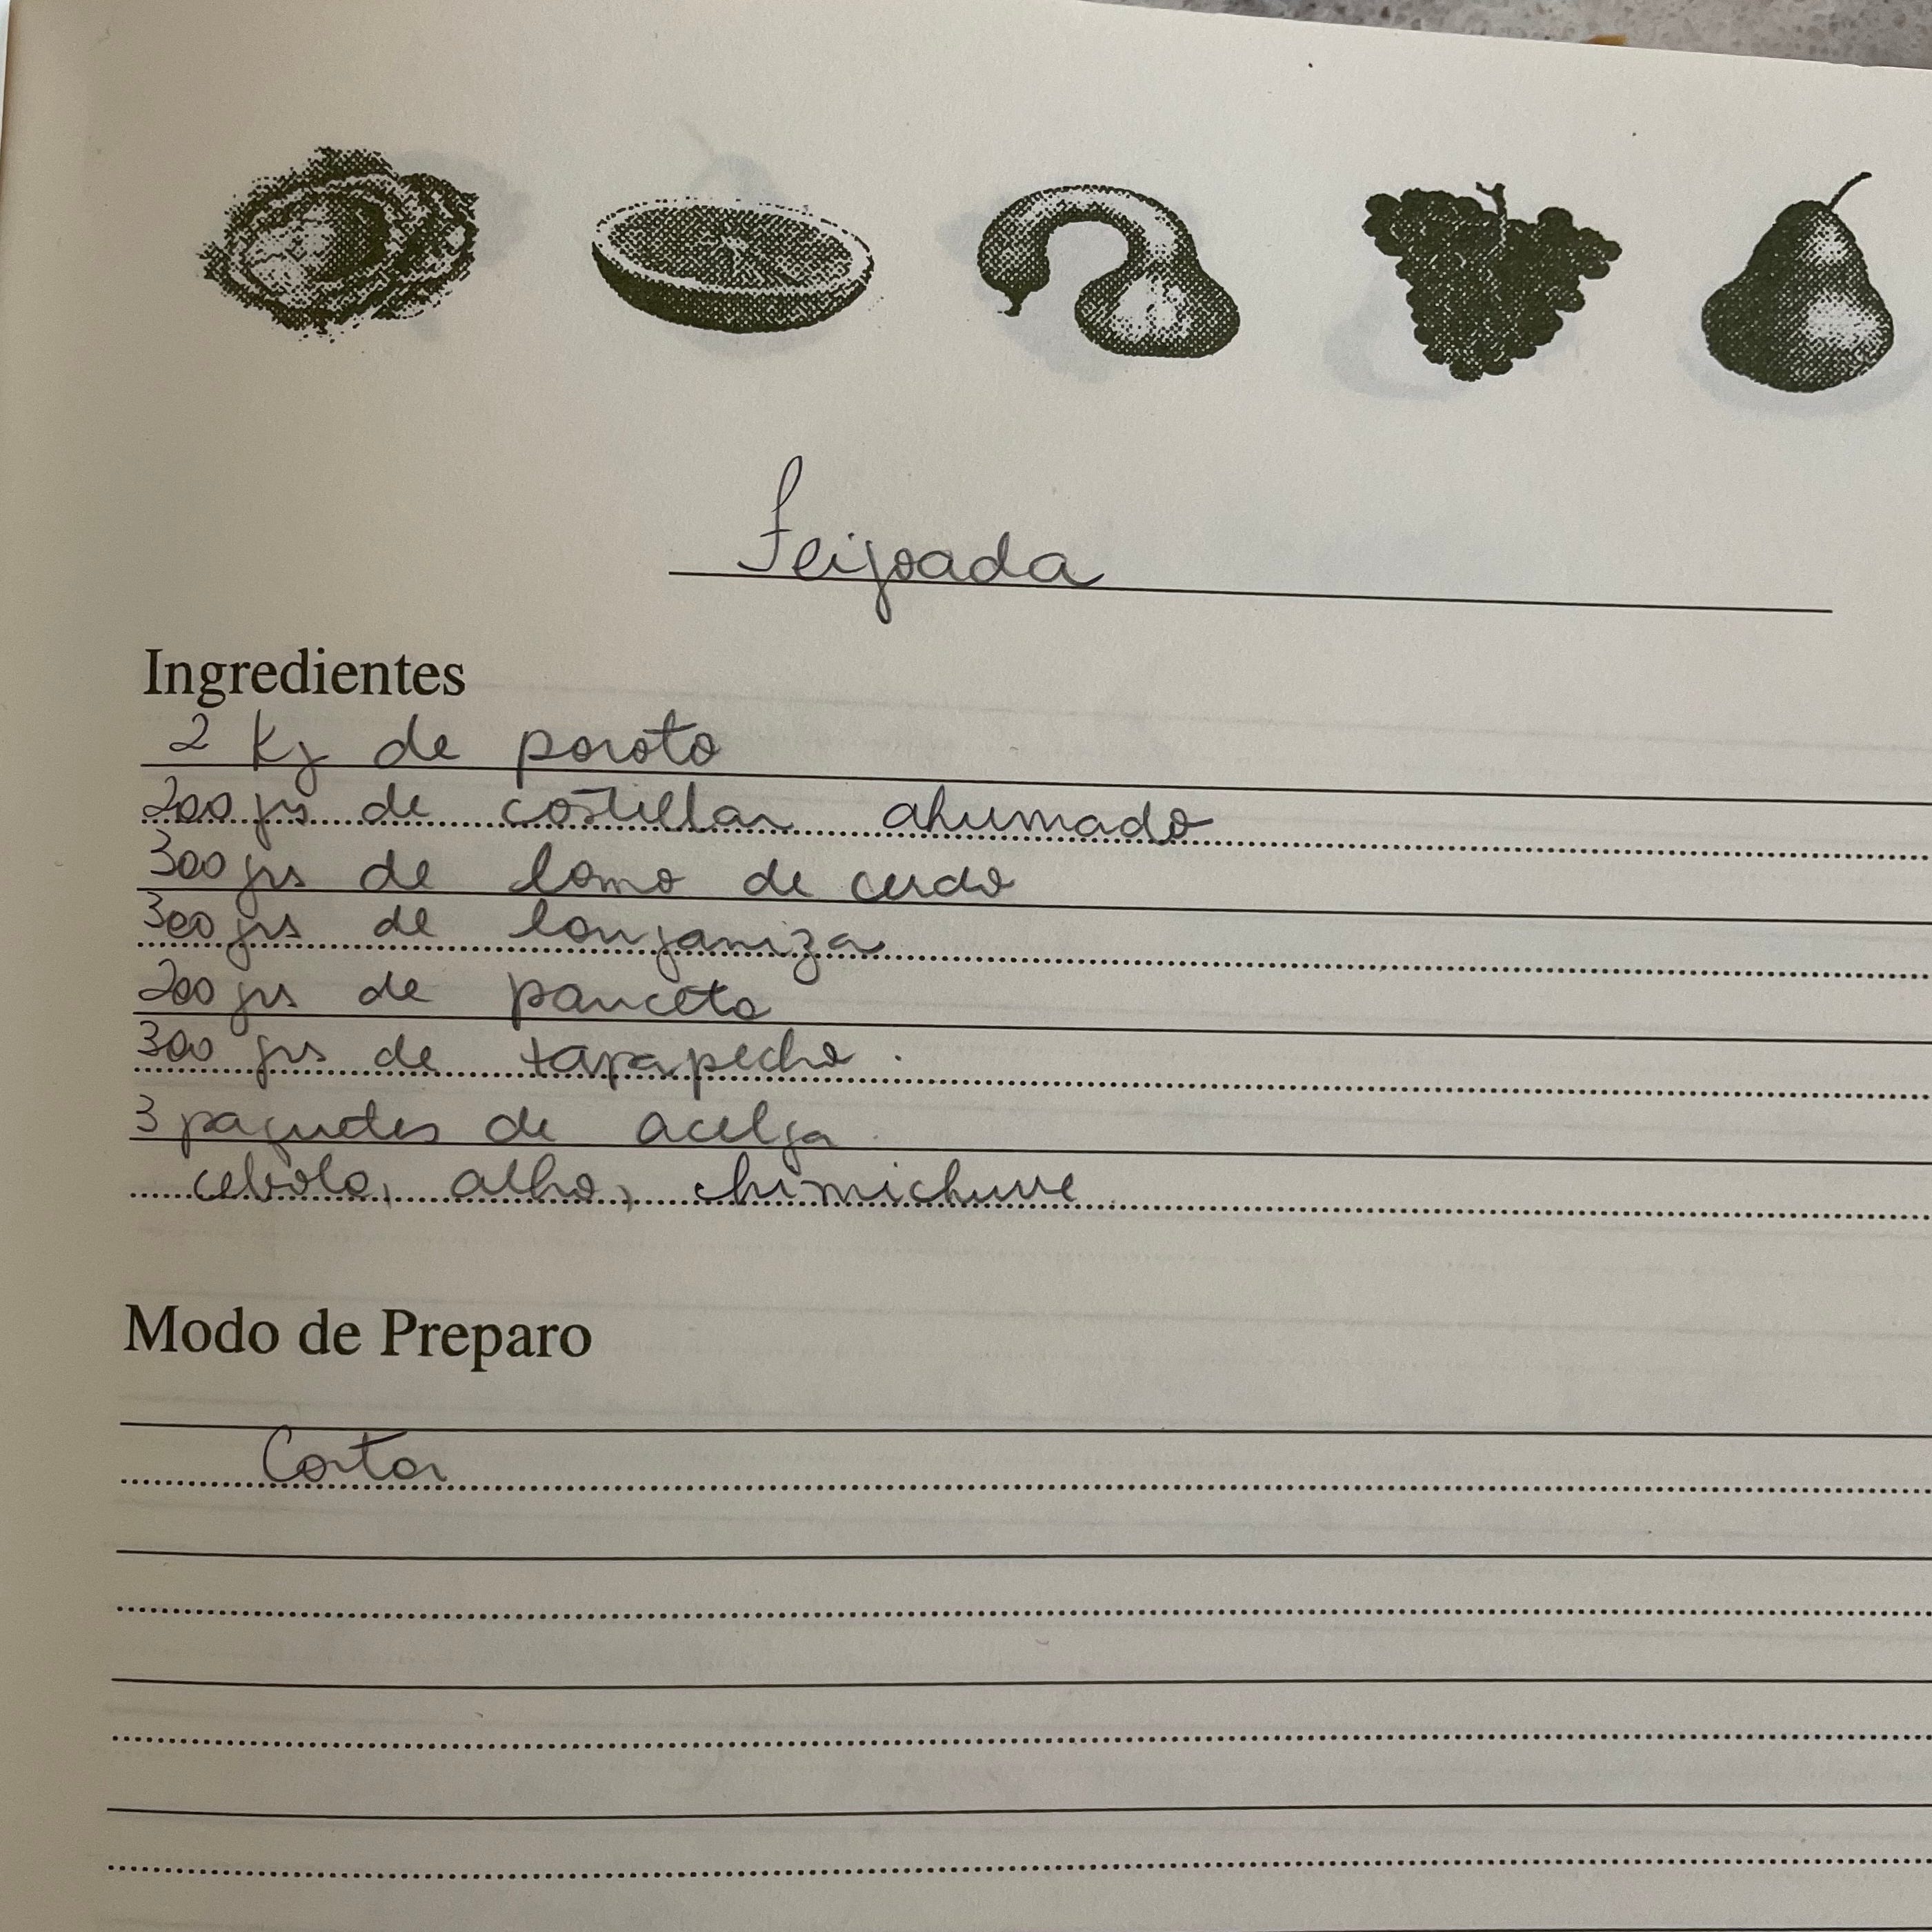 Feijoada
Ingredientes
2 kg de poroto
200 grs de costillar ahumado
300 grs de lomo de cerdo
300 grs de longaniza
200 grs de panceta
300 grs de tapapecho.
3 paquetes de acelga
cebola, alho, chimichurre
Modo de Preparo
Cortar